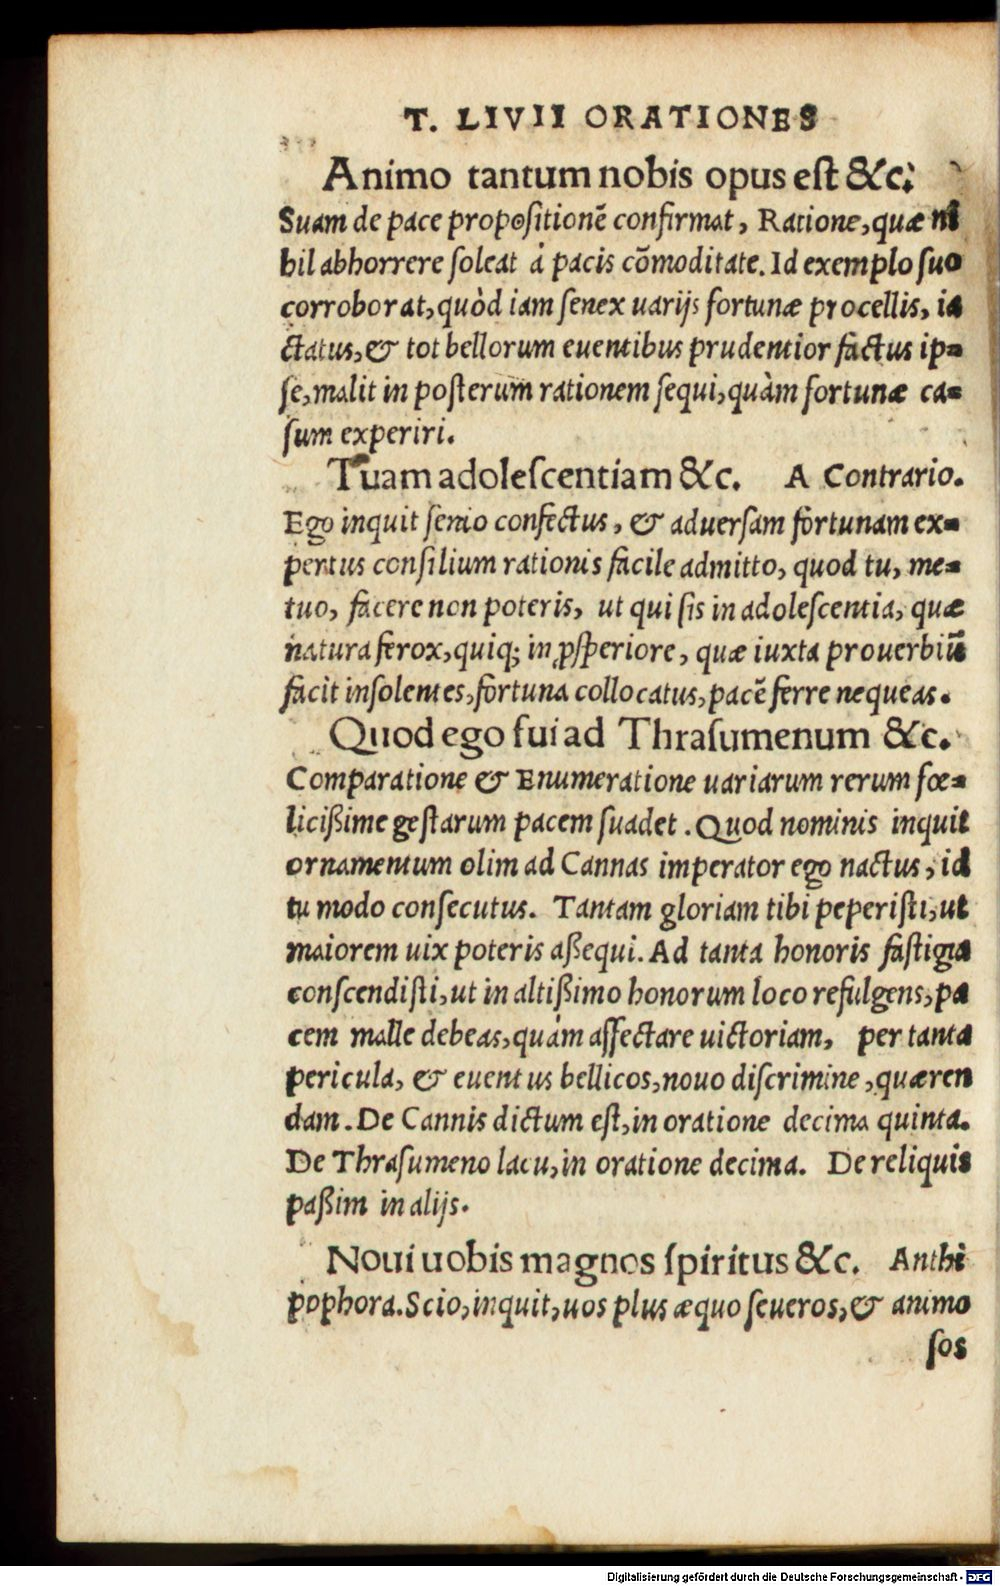 T. LIVII ORATIONES
Animo tantum nobis opus eſt &c.
Suam de pace propoſitionē confirmat, Ratione, quæ ni
hil abhorrere ſoleat à pacis cōmoditate. Id exemplo ſuo
corroborat, quòd iam ſenex uarijs fortunæ procellis, ia
ctatus, & tot bellorum euentibus prudentior factus ip=
ſe, malit in poſterum rationem ſequi, quàm fortunæ ca=
ſum experiri.
Tuam adoleſcentiam &c. A Contrario.
Ego inquit ſenio confectus, & aduerſam fortunam ex=
pertus conſilium rationis facile admitto, quod tu, me=
tuo, facere non poteris, ut qui ſis in adoleſcentia, quæ
natura ferox, quiq; in ꝓſperiore, quæ iuxta prouerbiū
facit inſolentes, fortuna collocatus, pacē ferre nequeas.
Quod ego fui ad Thraſumenum &c.
Comparatione & Enumeratione uariarum rerum fœ=
licißime geſtarum pacem ſuadet. Quod nominis inquit
ornamentum olim ad Cannas imperator ego nactus, id
tu modo conſecutus. Tantam gloriam tibi peperiſti, ut
maiorem uix poteris aßequi. Ad tanta honoris faſtigia
conſcendiſti, ut in altißimo honorum loco refulgens, pa
cem malle debeas, quàm affectare uictoriam, per tanta
pericula, & euentus bellicos, nouo diſcrimine, quæren
dam. De Cannis dictum eſt, in oratione decima quinta.
De Thraſumeno lacu, in oratione decima. De reliquis
paßim in alijs.
Noui uobis magnos ſpiritus &c. Anthi
pophora. Scio, inquit, uos plus æquo ſeueros, & animo
ſos
Digitalisierung gefördert durch die Deutsche Forschungsgemeinschaft - DFG